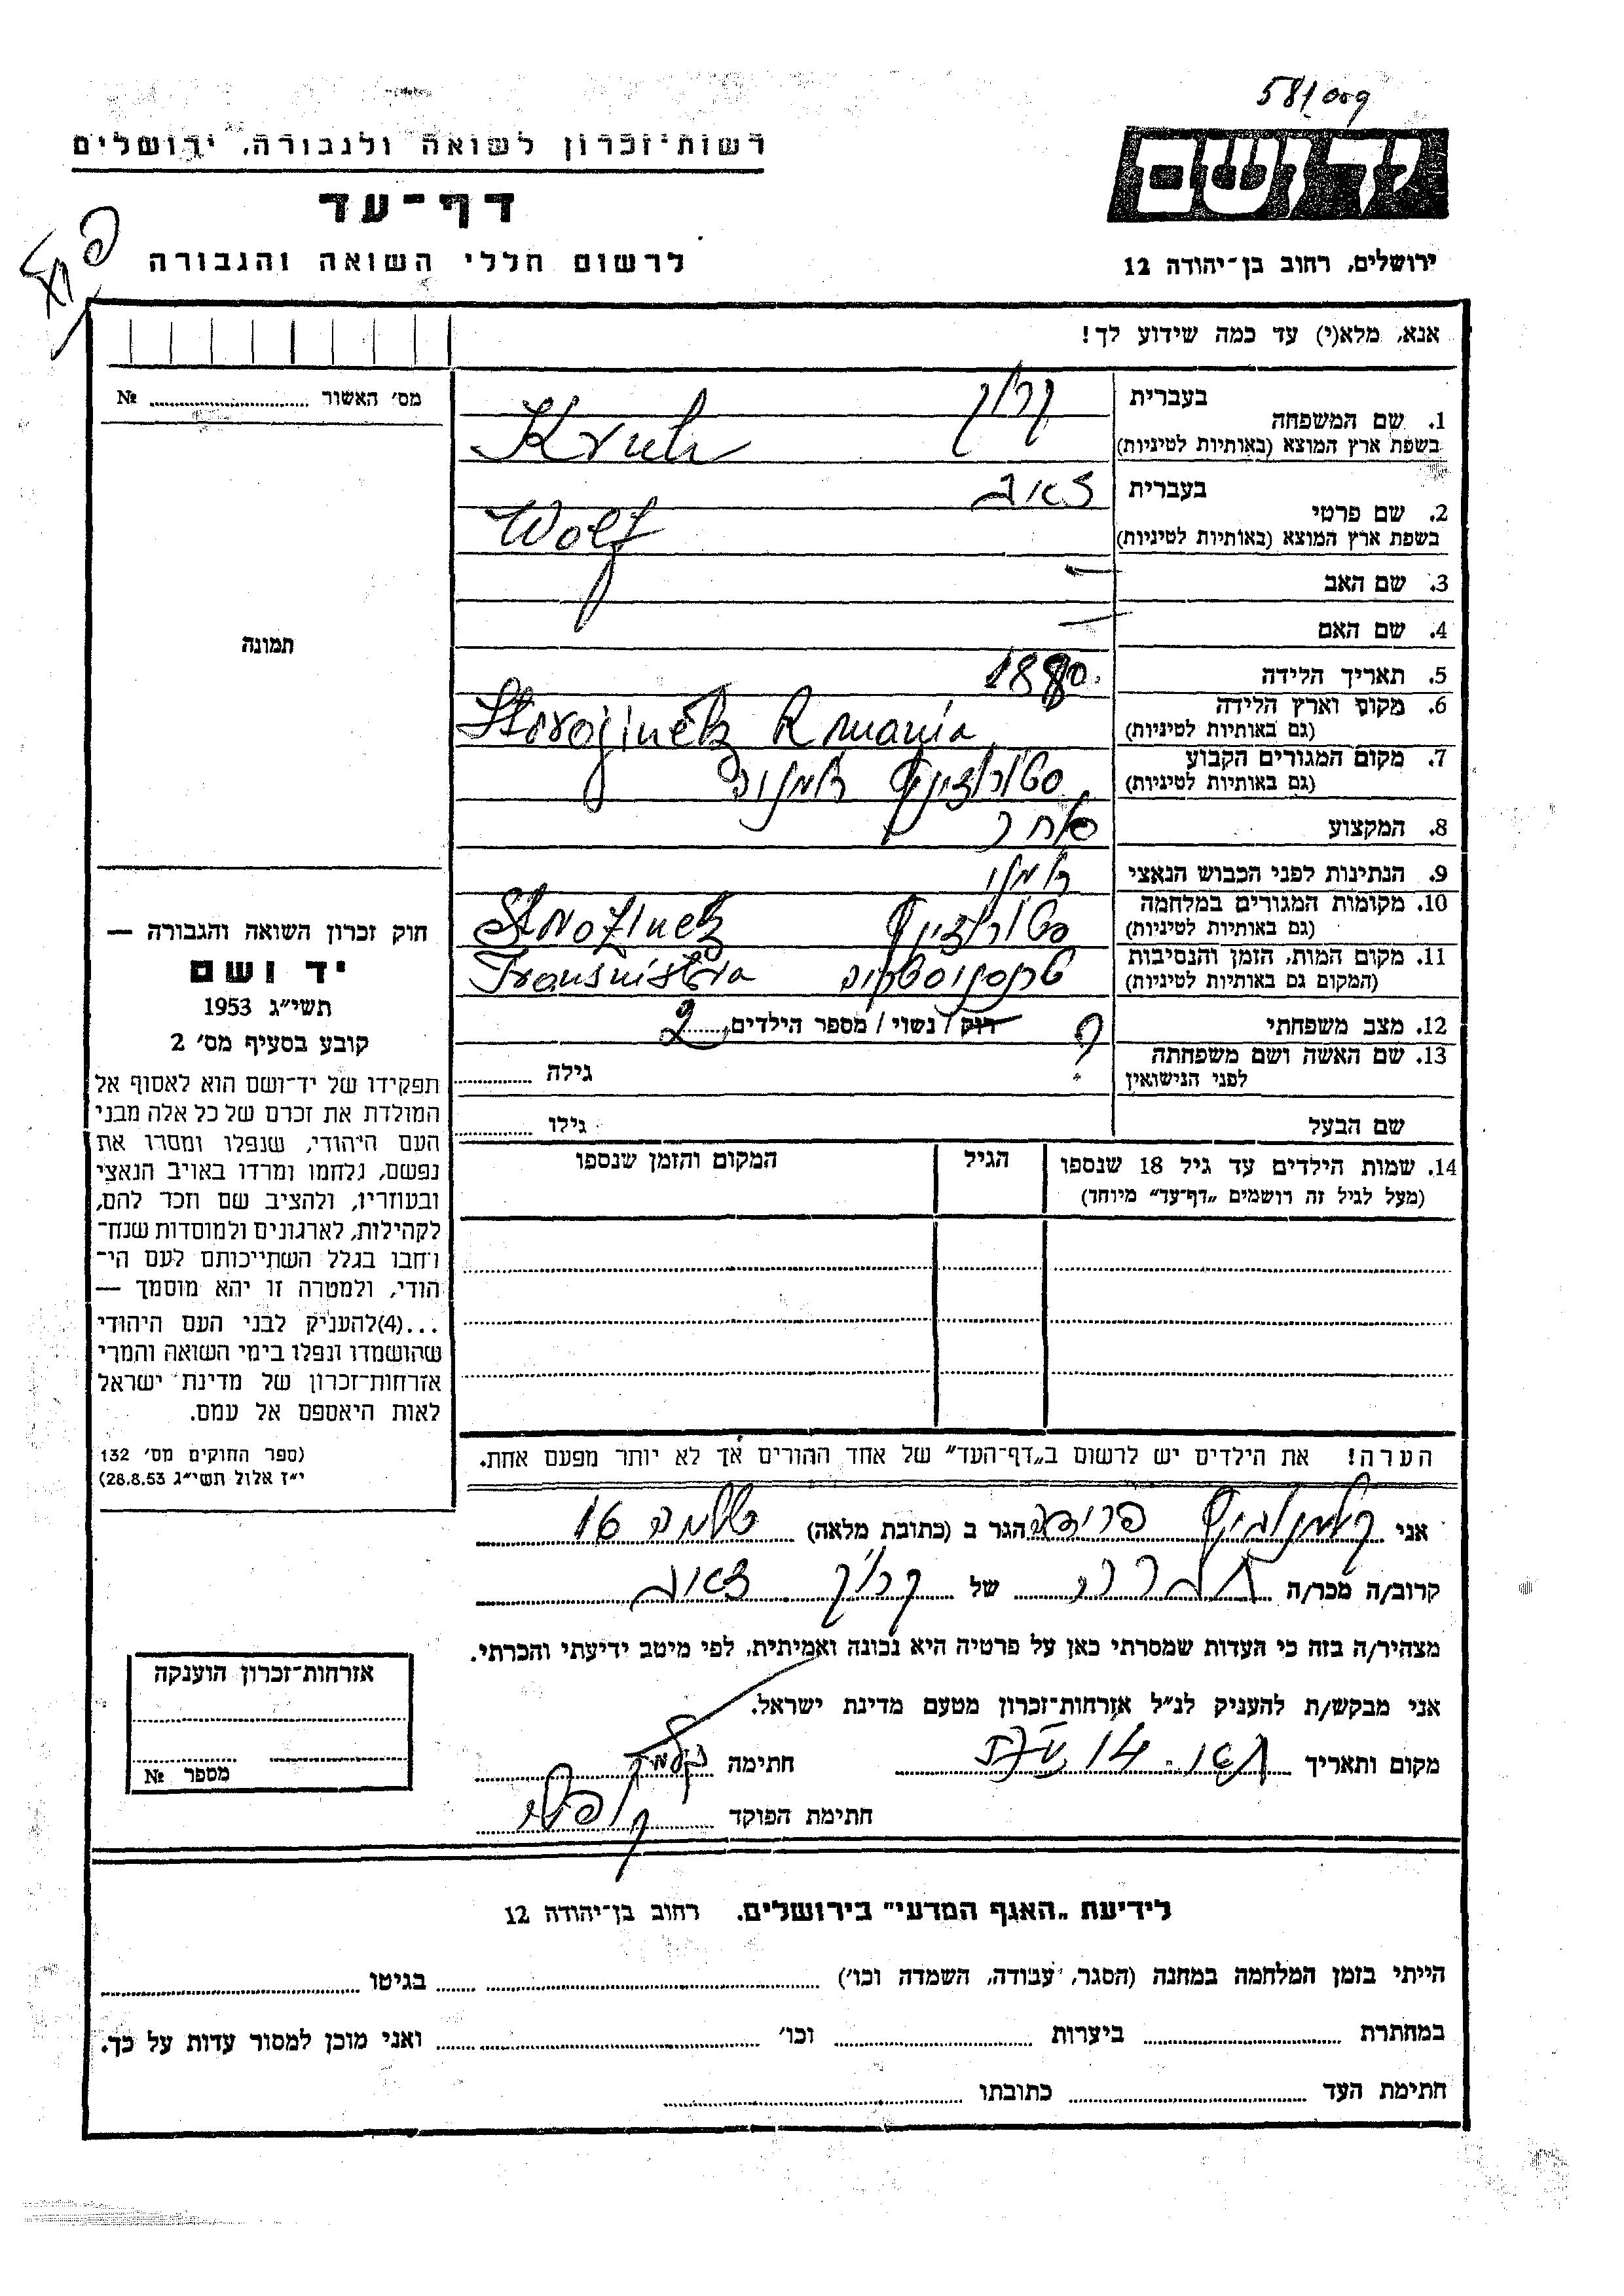 581 org
ידושם
ירושלים, רחוב בן־יהודה 12
רשות־זכרון לשואה ולגבורה, ירושלים
דף־עד
לרשום חללי השואה והגבורה
אנא, מלא(י) עד כמה שידוע לך!
1. שם המשפחה
בעברית
בשפת ארץ המוצא (באותיות לטיניות)
Kruh
2. שם פרטי
בעברית זאב
בשפת ארץ המוצא (באותיות לטיניות)
Wolf
3. שם האב —
4. שם האם —
5. תאריך הלידה 1880
6. מקום וארץ הלידה
(גם באותיות לטיניות)
7. מקום המגורים הקבוע
(גם באותיות לטיניות)
8. המקצוע סוחר
9. הנתינות לפני הכבוש הנאצי רומני
10. מקומות המגורים במלחמה
(גם באותיות לטיניות)
11. מקום המות, הזמן והנסיבות
(המקום גם באותיות לטיניות)
טרנסניסטריה Transnistria
12. מצב משפחתי רוק / נשוי / מספר הילדים 2
13. שם האשה ושם משפחתה
לפני הנישואין ? גילה
שם הבעל גילו
14. שמות הילדים עד גיל 18 שנספו
(מעל לגיל זה רושמים „דף־עד" מיוחד)
הגיל
המקום והזמן שנספו
הערה! את הילדים יש לרשום ב„דף־העד" של אחד ההורים אך לא יותר מפעם אחת.
מס׳ האשור №
תמונה
חוק זכרון השואה והגבורה —
יד ושם
תשי״ג 1953
קובע בסעיף מס׳ 2
תפקידו של יד־ושם הוא לאסוף אל
המולדת את זכרם של כל אלה מבני
העם היהודי, שנפלו ומסרו את
נפשם, נלחמו ומרדו באויב הנאצי
ובעוזריו, ולהציב שם וזכר להם,
לקהילות, לארגונים ולמוסדות שנח־
רבו בגלל השתייכותם לעם הי־
הודי, ולמטרה זו יהא מוסמך —
...(4)להעניק לבני העם היהודי
שהושמדו ונפלו בימי השואה והמרי
אזרחות־זכרון של מדינת ישראל
לאות היאספם אל עמם.
(ספר החוקים מס׳ 132
י״ז אלול תשי״ג 28.8.53)
אני הגר ב (כתובת מלאה) 16
קרוב/ה מכר/ה של זאב
מצהיר/ה בזה כי העדות שמסרתי כאן על פרטיה היא נכונה ואמיתית, לפי מיטב ידיעתי והכרתי.
אני מבקש/ת להעניק לנ״ל אזרחות־זכרון מטעם מדינת ישראל.
מקום ותאריך חתימה
חתימת הפוקד
אזרחות־זכרון הוענקה
מספר №
לידיעת „האגף המדעי" בירושלים, רחוב בן־יהודה 12
הייתי בזמן המלחמה במחנה (הסגר, עבודה, השמדה וכו׳) בגיטו
במחתרת ביערות וכו׳ ואני מוכן למסור עדות על כך.
חתימת העד כתובתו